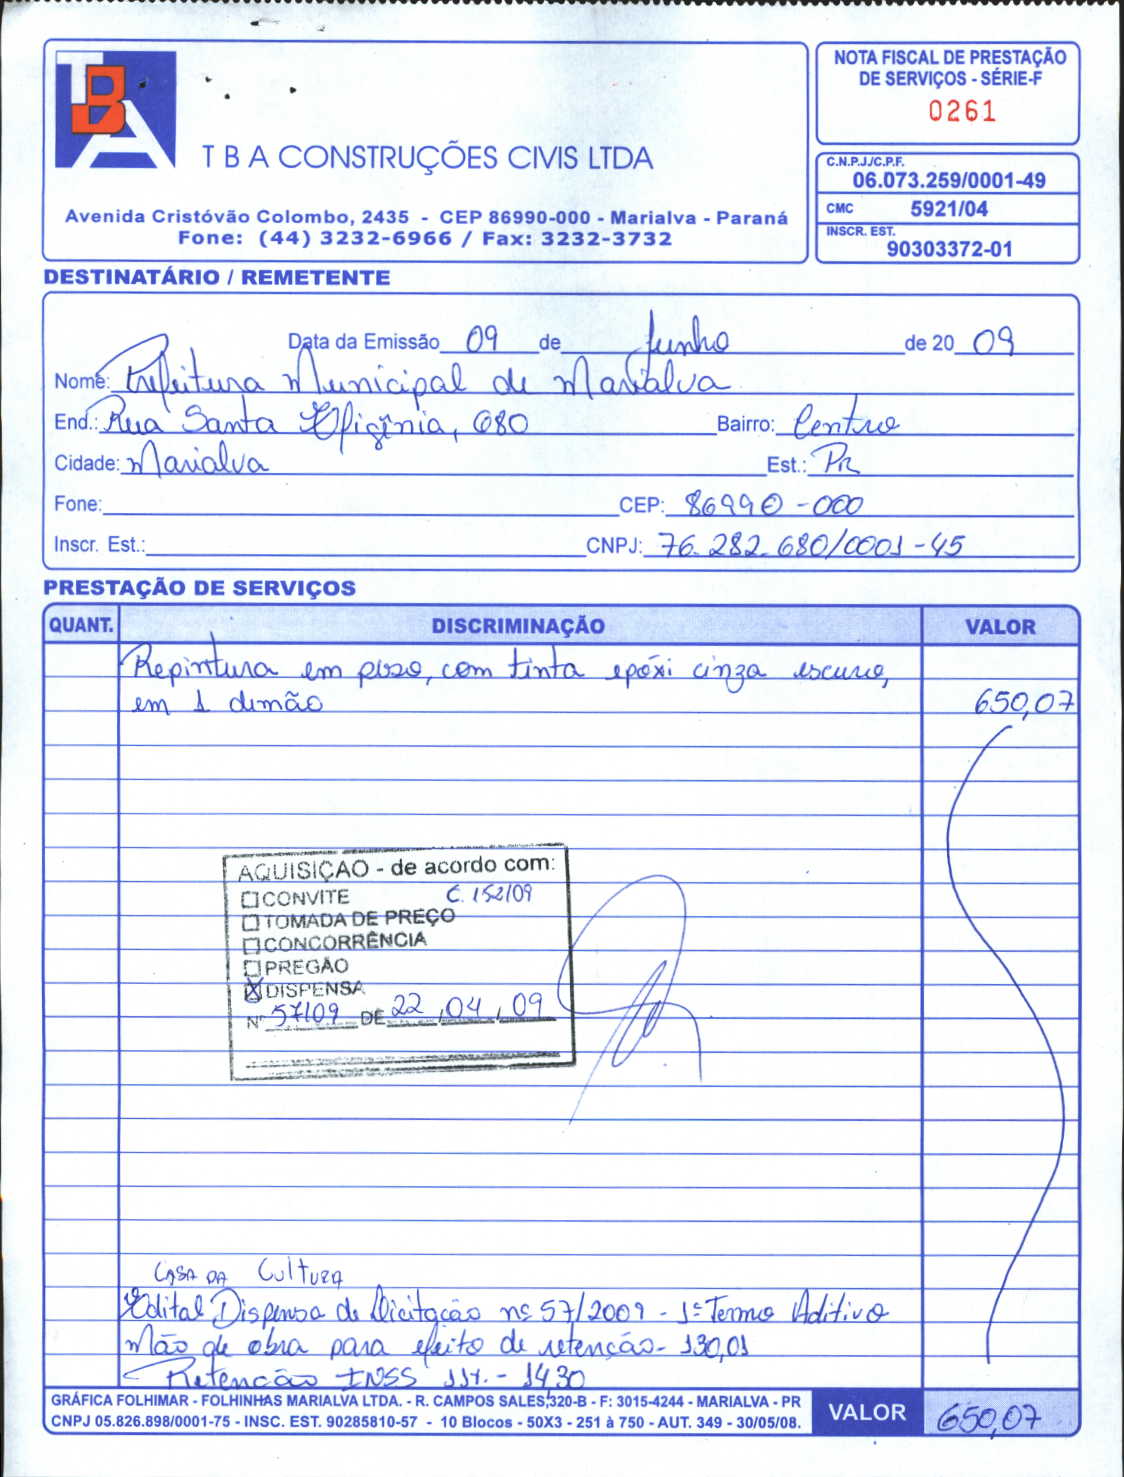 TBA
T B A CONSTRUÇÕES CIVIS LTDA
Avenida Cristóvão Colombo, 2435 - CEP 86990-000 - Marialva - Paraná
Fone: (44) 3232-6966 / Fax: 3232-3732
NOTA FISCAL DE PRESTAÇÃO
DE SERVIÇOS - SÉRIE-F
0261
C.N.P.J./C.P.F.
06.073.259/0001-49
CMC 5921/04
INSCR. EST.
90303372-01
DESTINATÁRIO / REMETENTE
Data da Emissão 09 de Junho de 20 09
Nome: Prefeitura Municipal de Marialva
End.: Rua Santa Efigênia, 680 Bairro: Centro
Cidade: Marialva Est.: Pr
Fone: CEP: 86990-000
Inscr. Est.: CNPJ: 76.282.680/0001-45
PRESTAÇÃO DE SERVIÇOS
QUANT. DISCRIMINAÇÃO VALOR
Repintura em piso, com tinta epóxi cinza escuro,
em 1 demão 650,07
AQUISIÇAO - de acordo com:
CONVITE C. 152/09
TOMADA DE PREÇO
CONCORRÊNCIA
PREGÃO
DISPENSA
Nº 57/09 DE 22, 04, 09
CASA DA Cultura
Edital Dispensa de Licitação nº 57/2009 - 1º Termo Aditivo
Mão de obra para efeito de retenção - 130,01
Retencão INSS 11%. - 14,30
GRÁFICA FOLHIMAR - FOLHINHAS MARIALVA LTDA. - R. CAMPOS SALES,320-B - F: 3015-4244 - MARIALVA - PR
CNPJ 05.826.898/0001-75 - INSC. EST. 90285810-57 - 10 Blocos - 50X3 - 251 à 750 - AUT. 349 - 30/05/08.
VALOR 650,07